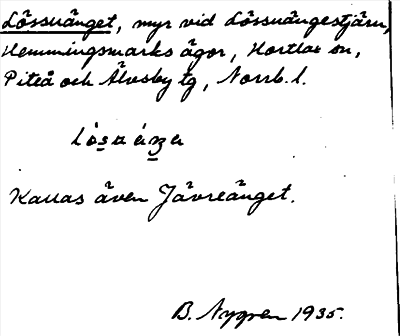 Lössuänget, myr vid Lössuängestjärn,
Hemmingsmarks ägor, Hortlax sn,
Piteå och Älvsby tg, Norrb. l.
Kallas även Jävreänget.
B. Nygren 1935.